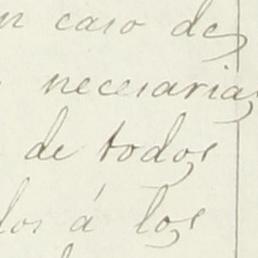 en caso de
necesarias
de todos
á los